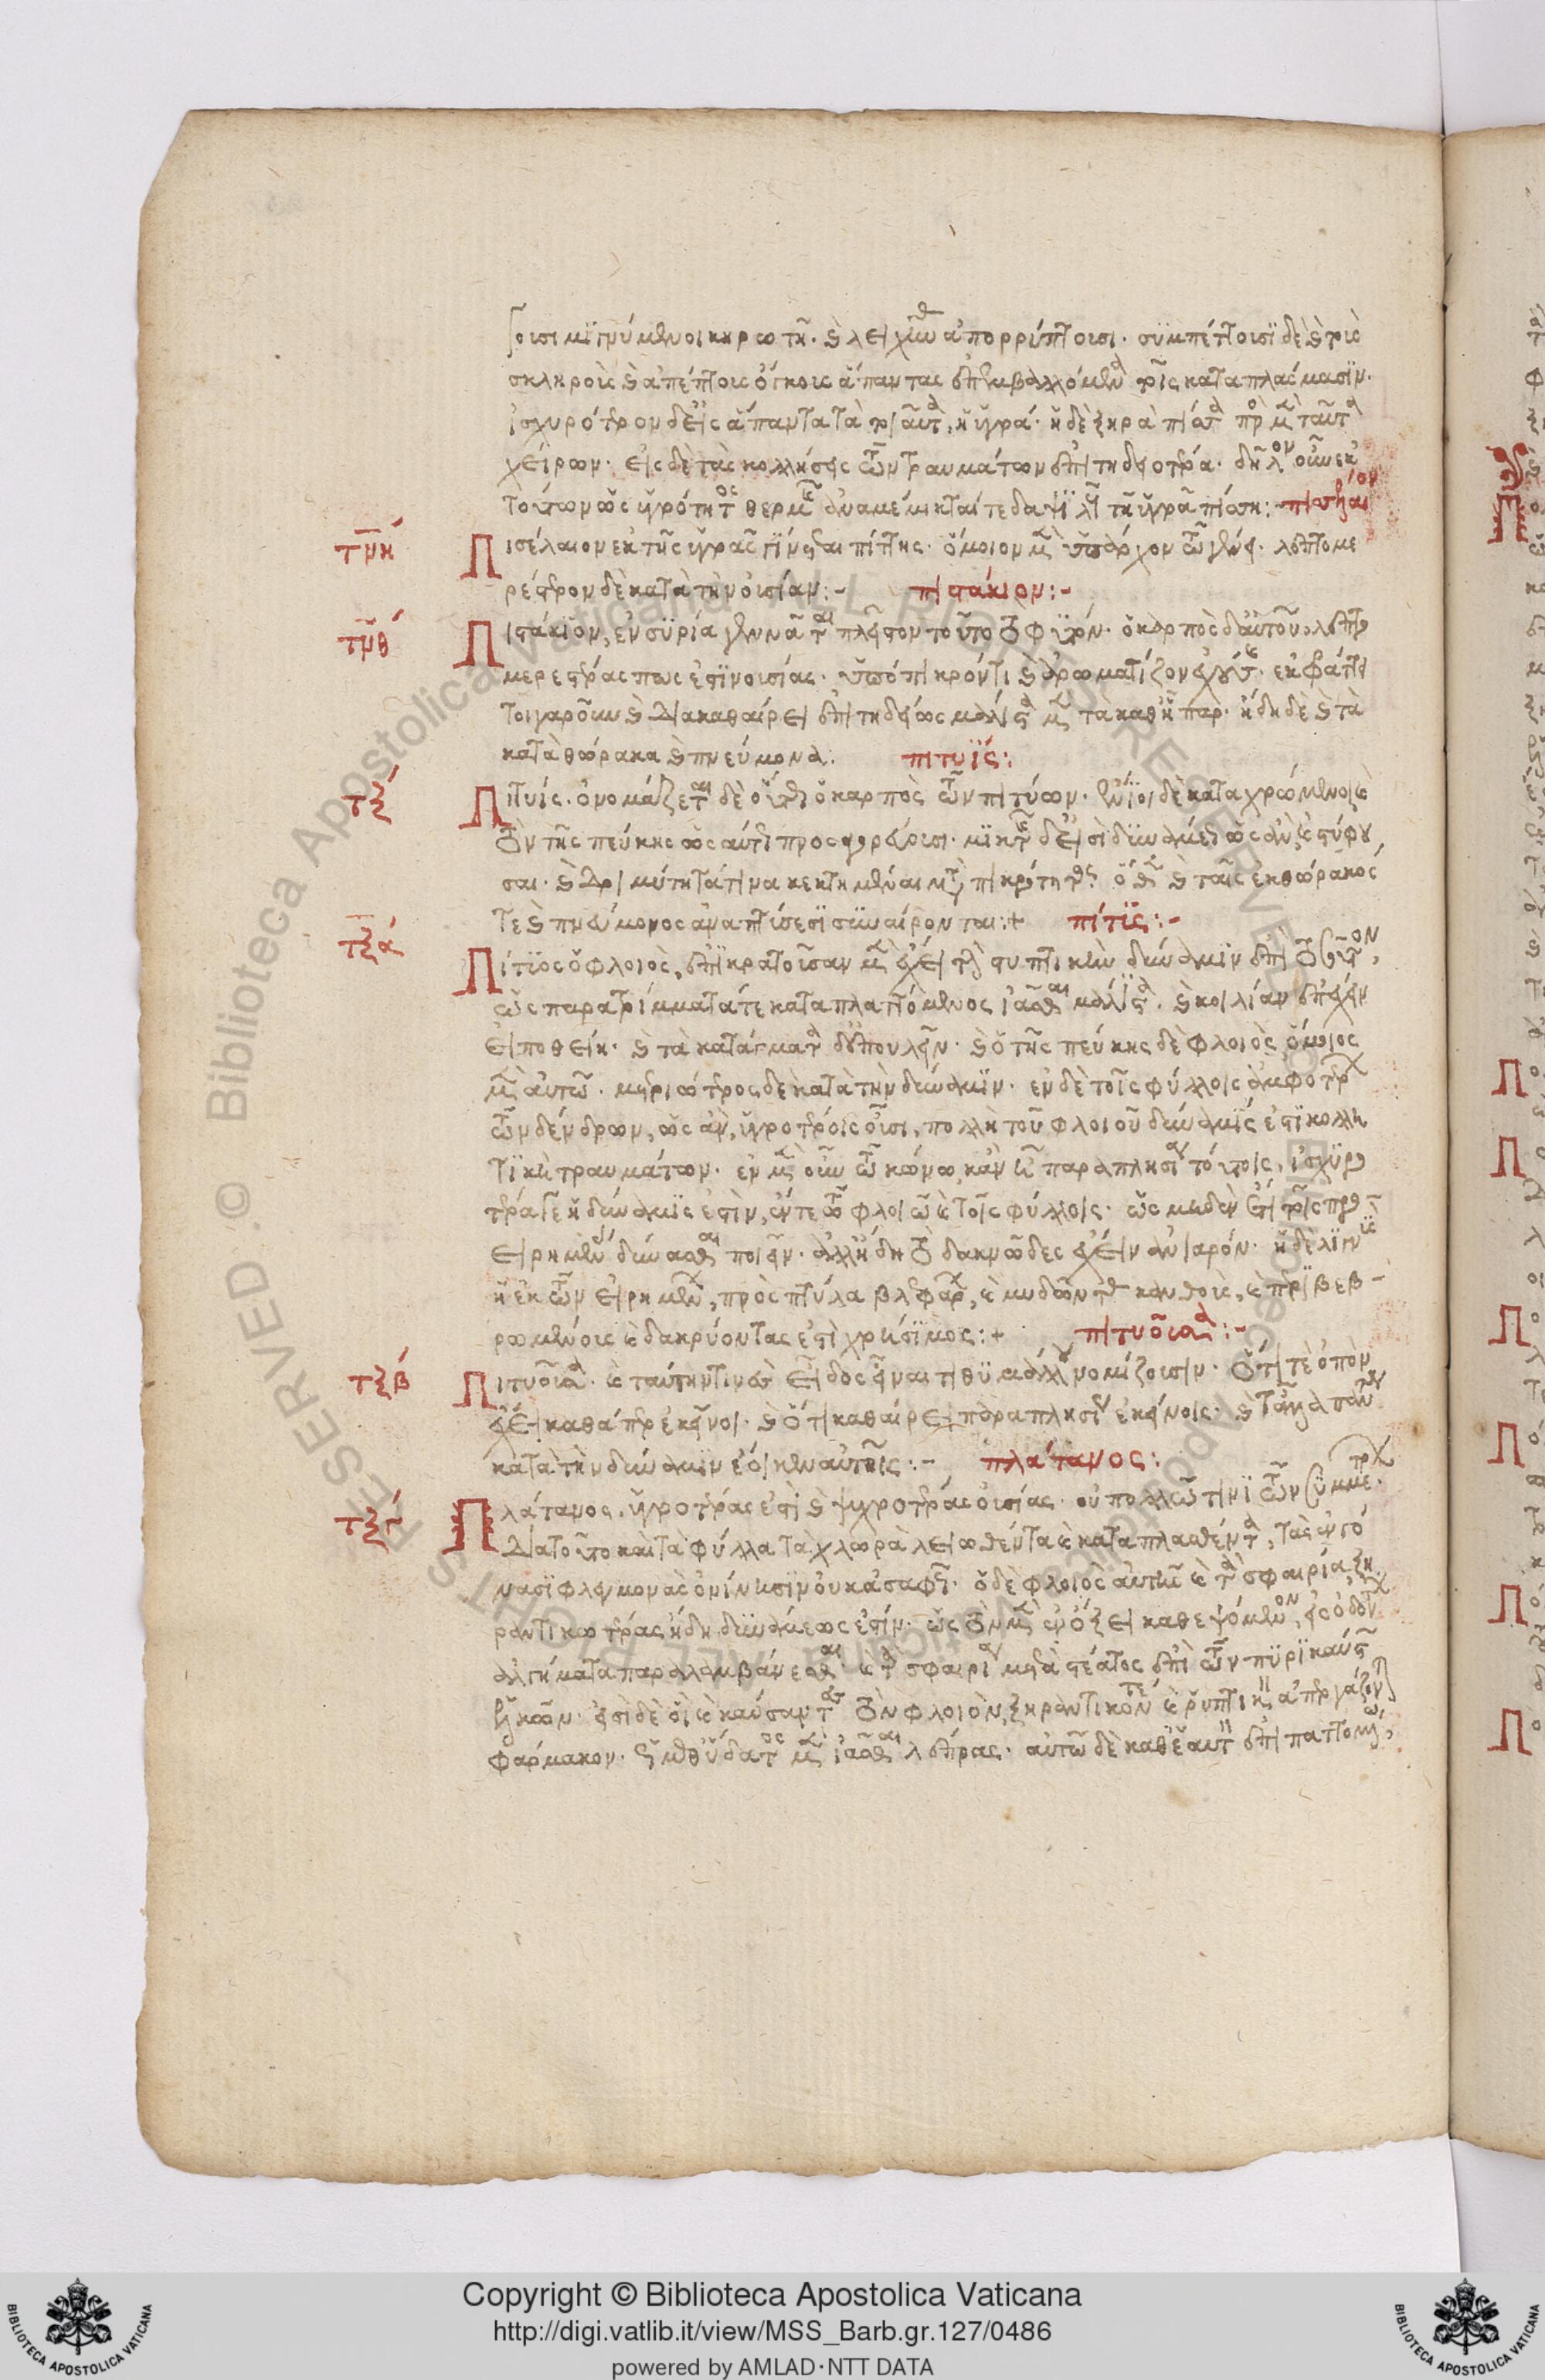 οισι μιγνύμενοι κηρωτῆ. καὶ λειχῆνας ἀπορρίπτουσι. συμπέττουσι δὲ καὶ τοὺς
σκληροὺς καὶ ἀπέπτους ὄγκους ἅπαντας ἐπεμβαλλόμεναι τοῖς καταπλάσμασιν.
ἰσχυρότερον δὲ εἰς ἅπαντα τὰ τοιαῦτα, ἡ ὑγρά. ἡ δὲ ξηρὰ πρὸς μὲν ταῦτα
χείρων. εἰς δὲ τὰς κολλήσεις τῶν τραυμάτων ἐπιτηδειοτέρα. δῆλον οὖν ἐκ
τούτων ὡς ὑγρότητος θερμῆς ἀναμέμικταί τε δαψιλῆ τῆ ὑγρᾶ πίσση: πισσέλαιον
τνη
Πισέλαιον ἐκ τῆς ὑγρᾶς γίνεται πίττης. ὅμοιον μὲν ὑπάρχον τῶ γένει. λεπτομε
ρέστερον δὲ κατὰ τὴν οὐσίαν:- πιστάκιον:-
τνθ
Πιστάκιον, ἐν συρία γεννᾶται πλεῖστον τοῦτο τὸ φυτόν. ὁ καρπὸς δ' αὐτοῦ, λεπτο
μερεστέρας πώς ἐστιν οὐσίας. ὑπόπικρόν τι καὶ ἀρωματίζον ἔχουσα. ἐκφράττει
τοιγαροῦν καὶ διακαθαίρει ἐπιτηδείως μάλιστα μὲν τὰ καθ' ἧπαρ. ἤδη δὲ καὶ τὰ
κατὰ θώρακα καὶ πνεύμονα: πιτυΐς:
τξ
Πιτυίς. ὀνομάζεται δὲ οὕτως ὁ καρπὸς τῶν πιτύων. ἔνιοι δὲ καταχρώμενοι καὶ
τὸν τῆς πεύκης ὡσαύτως προσαγορεύουσι. μικτῆς δ' ἐστὶ δυνάμεως ὡς ἂν καὶ στύφου
σαι. καὶ δριμύτητά τινα κεκτημέναι μετὰ πικρότητος. ὅθεν καὶ ταῖς ἐκ θώρακός
τε καὶ πνεύμονος ἀναπτύσεσι συναίρονται:+ πίτυς:-
τξα
Πίτυος ὁ φλοιὸς, ἐπικρατοῦσαν μὲν ἔχει τὴν στυπτικὴν δύναμιν ἐπὶ τοσοῦτον,
ὡς παρατρίμματά τε καταπλαττόμενος ἰᾶσθαι μάλιστα. καὶ κοιλίαν ἐπέχειν
εἰ ποθείη. καὶ τὰ κατακαύματα ἐπουλοῦν. καὶ ὁ τῆς πεύκης δὲ φλοιὸς ὅμοιος
μὲν αὐτῶ. μετριώτερος δὲ κατὰ τὴν δύναμιν. ἐν δὲ τοῖς φύλλοις ἀμφοτέρων
τῶν δένδρων, ὡς ἂν, ὑγροτέροις οὖσι, πολλὴ τοῦ φλοιοῦ δύναμίς ἐστι κολλη
τικὴ τραυμάτων. ἐν μὲν οὖν τῶ κώνω, κἂν ἦ παραπλησίου τούτοις, ἰσχυρο
τέρα γε ἡ δύναμις ἐστὶν, ἔν τε τῶ φλοιῶ καὶ τοῖς φύλλοις. ὡς μηδὲν ἔτι τοῖς προ
ειρημένων δύνασθαι ποιεῖν. ἀλλ' ἤδη τὸ δακνῶδες ἔχειν ἀνιαρόν. ἡ δὲ λιγνὺς
ἡ ἐκ τῶν εἰρημένων, πρὸς πτίλα βλέφαρα, καὶ μυδῶντας κανθοὺς, καὶ περιβεβ
ρωμένους καὶ δακρύοντας ἐστὶ χρήσιμος:+ πιτυοῦσα:-
τξβ
Πιτυοῦσα. καὶ ταύτην τινὲς εἶδος εἶναι τιθυμάλλου νομίζουσιν. ὅτι τε ὀπὸν
ἔχει καθάπερ ἐκεῖνοι. καὶ ὅτι καθαίρει παραπλησίως ἐκείνοις. καὶ τἄλλα πάντα
κατὰ τὴν δύναμιν ἔοικεν αὐτοῖς:- πλάτανος:
τξγ
Πλάτανος. ὑγροτέρας ἐστὶ καὶ ψυχροτέρας οὐσίας. οὐ πολλῶ τινὶ τῶν συμμέτρων.
διατοῦτο καὶ τὰ φύλλα τὰ χλωρὰ λειωθέντα καὶ καταπλασθέντα, τὰς ἐν γό
νασι φλεγμονὰς ὀνίνησιν οὐκ ἀσαφῶς. ὁ δὲ φλοιὸς αὐτῆς καὶ τὰ σφαιρία ξη
ραντικωτέρας ἤδη δυνάμεως ἐστίν. ὡς τὸν μὲν ἐν ὄξει καθεψόμενον, εἰς ὀδόντων
ἀλγήματα παραλαμβάνεσθαι. καὶ τὰ σφαιρία μετὰ στέατος ἐπὶ τῶν πυρικαύστων
ἑλκῶν. εἰσὶ δὲ οἳ καὶ καύσαντες τὸν φλοιὸν, ξηραντικόν τε καὶ ῥυπτικὸν ἀπεργάζονται
φάρμακον. ὃ μεθ' ὕδατος μὲν ἰᾶσθαι λέπρας. αὐτῶ δὲ καθ' ἑαυτὸ ἐπιπαττόμενον,
Copyright © Biblioteca Apostolica Vaticana
http://digi.vatlib.it/view/MSS_Barb.gr.127/0486
powered by AMLAD·NTT DATA